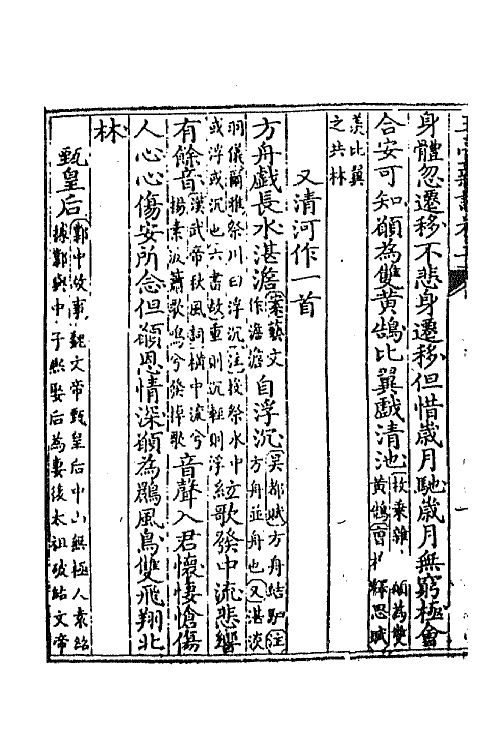 身體忽遷移不悲身遷移但惜歲月馳歲月無窮極會
合安可知願為雙黃鵠比翼戲清池枚乘雜 願為雙黃鵠曹 釋思賦
羨比翼之共林
又清河作一首
方舟戲長水湛澹案藝文作澹澹自浮沉吳都賦方舟結駟注方舟並舟也又湛淡
羽儀爾雅祭川曰浮沉注投祭水中或浮或沉也六書故重則沉輕則浮絃歌發中流悲響
有餘音漢武帝秋風詞橫中流兮揚素波簫鼓鳴兮發棹歌音聲入君懷悽愴傷
人心心傷安所念但願恩情深願為鷐風鳥雙飛翔北
林
甄皇后鄴中故事魏文帝甄皇后中山無極人袁紹據鄴與中子熙娶后為妻後太祖破紹文帝